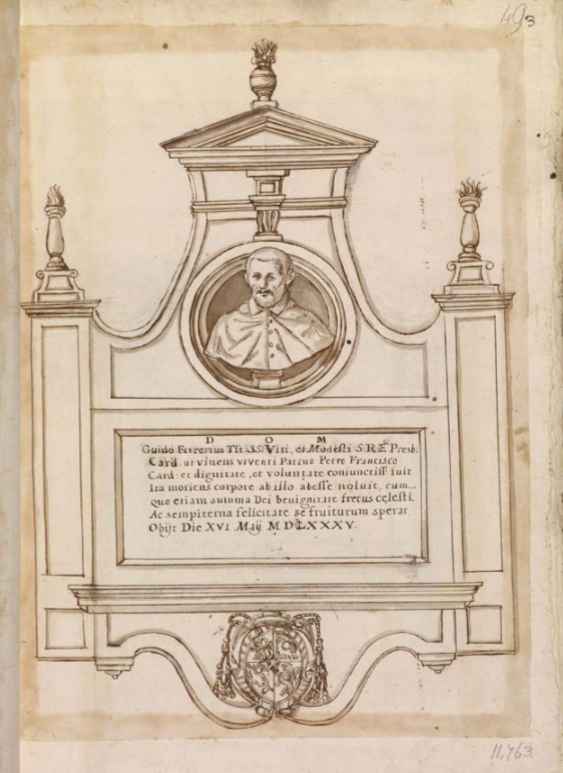 493
D O M
Guido Ferrerius Tit. SS. Viti, et Modesti S. R. E. Presb.
Card. ut vivens viventi Patruo Petro Francisco
Card: et dignitate, et voluntate coniunctiss. fuit
Ita moriens corpore ab illo abesse noluit, cum_
quo etiam summa Dei benignitate fretus celesti.
Ac sempiterna felicitate se fruiturum sperat
Obijt Die XVI Maij MDLXXXV.
11,763